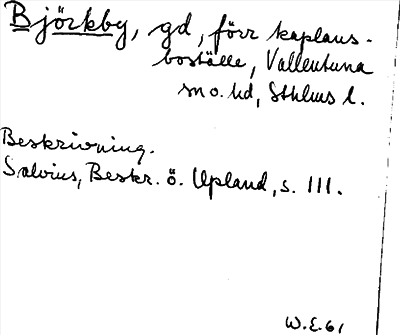 Björkby, gd, förr kaplans-
boställe, Vallentuna
sn o. hd, Sthlms l.
Beskrivning.
Salvius, Beskr. ö. Upland, s. 111.
W.E.61